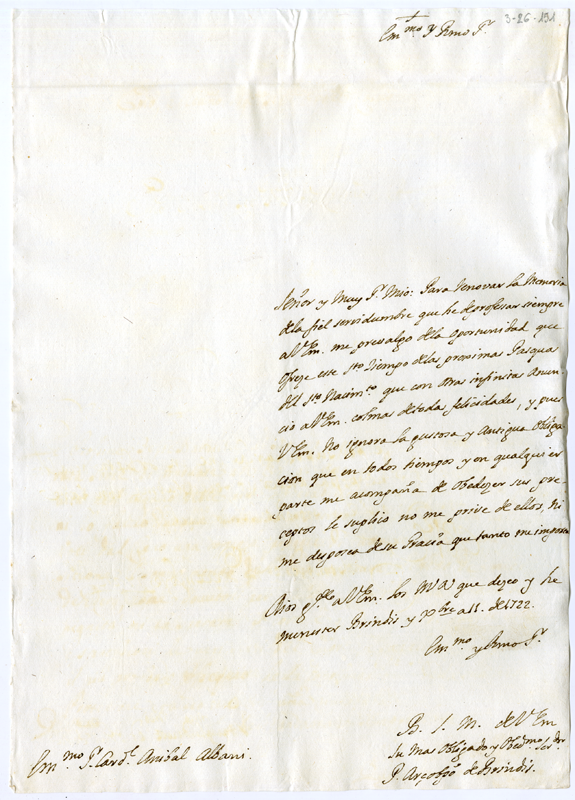 3-26-191
+
Em.mo y Rmo S.r
Señor y muy S.r Mio: Para renovar la Memoria
de la fiel servidumbre que he de professar siempre
a V.Em. me prevalgo de la oportunidad que
ofreze este Sto tiempo de las proximas Pasquas
del Sto Nacim.to que con otras infinitas anun-
cio a V.Em. colmas de toda felicidades, y pues
V.Em. no ignora la gustosa y antigua obliga-
cion que en todos tiempos y en qualquier
parte me acompaña de obedezer sus pre-
ceptos le suplico no me prive de ellos, ni
me desposea de su Gracia que tanto me importa
Dios g.de a V.Em. los M A que dezeo y he
menester Brindis y Xbre a 11. de 1722.
Em.mo y Rmo S.r
B. L. M. de V.Em
su mas obligado y obed.mo Ser.dor
P. Arçobpo de Brindis.
Em.mo S.r Card.l Anibal Albani.